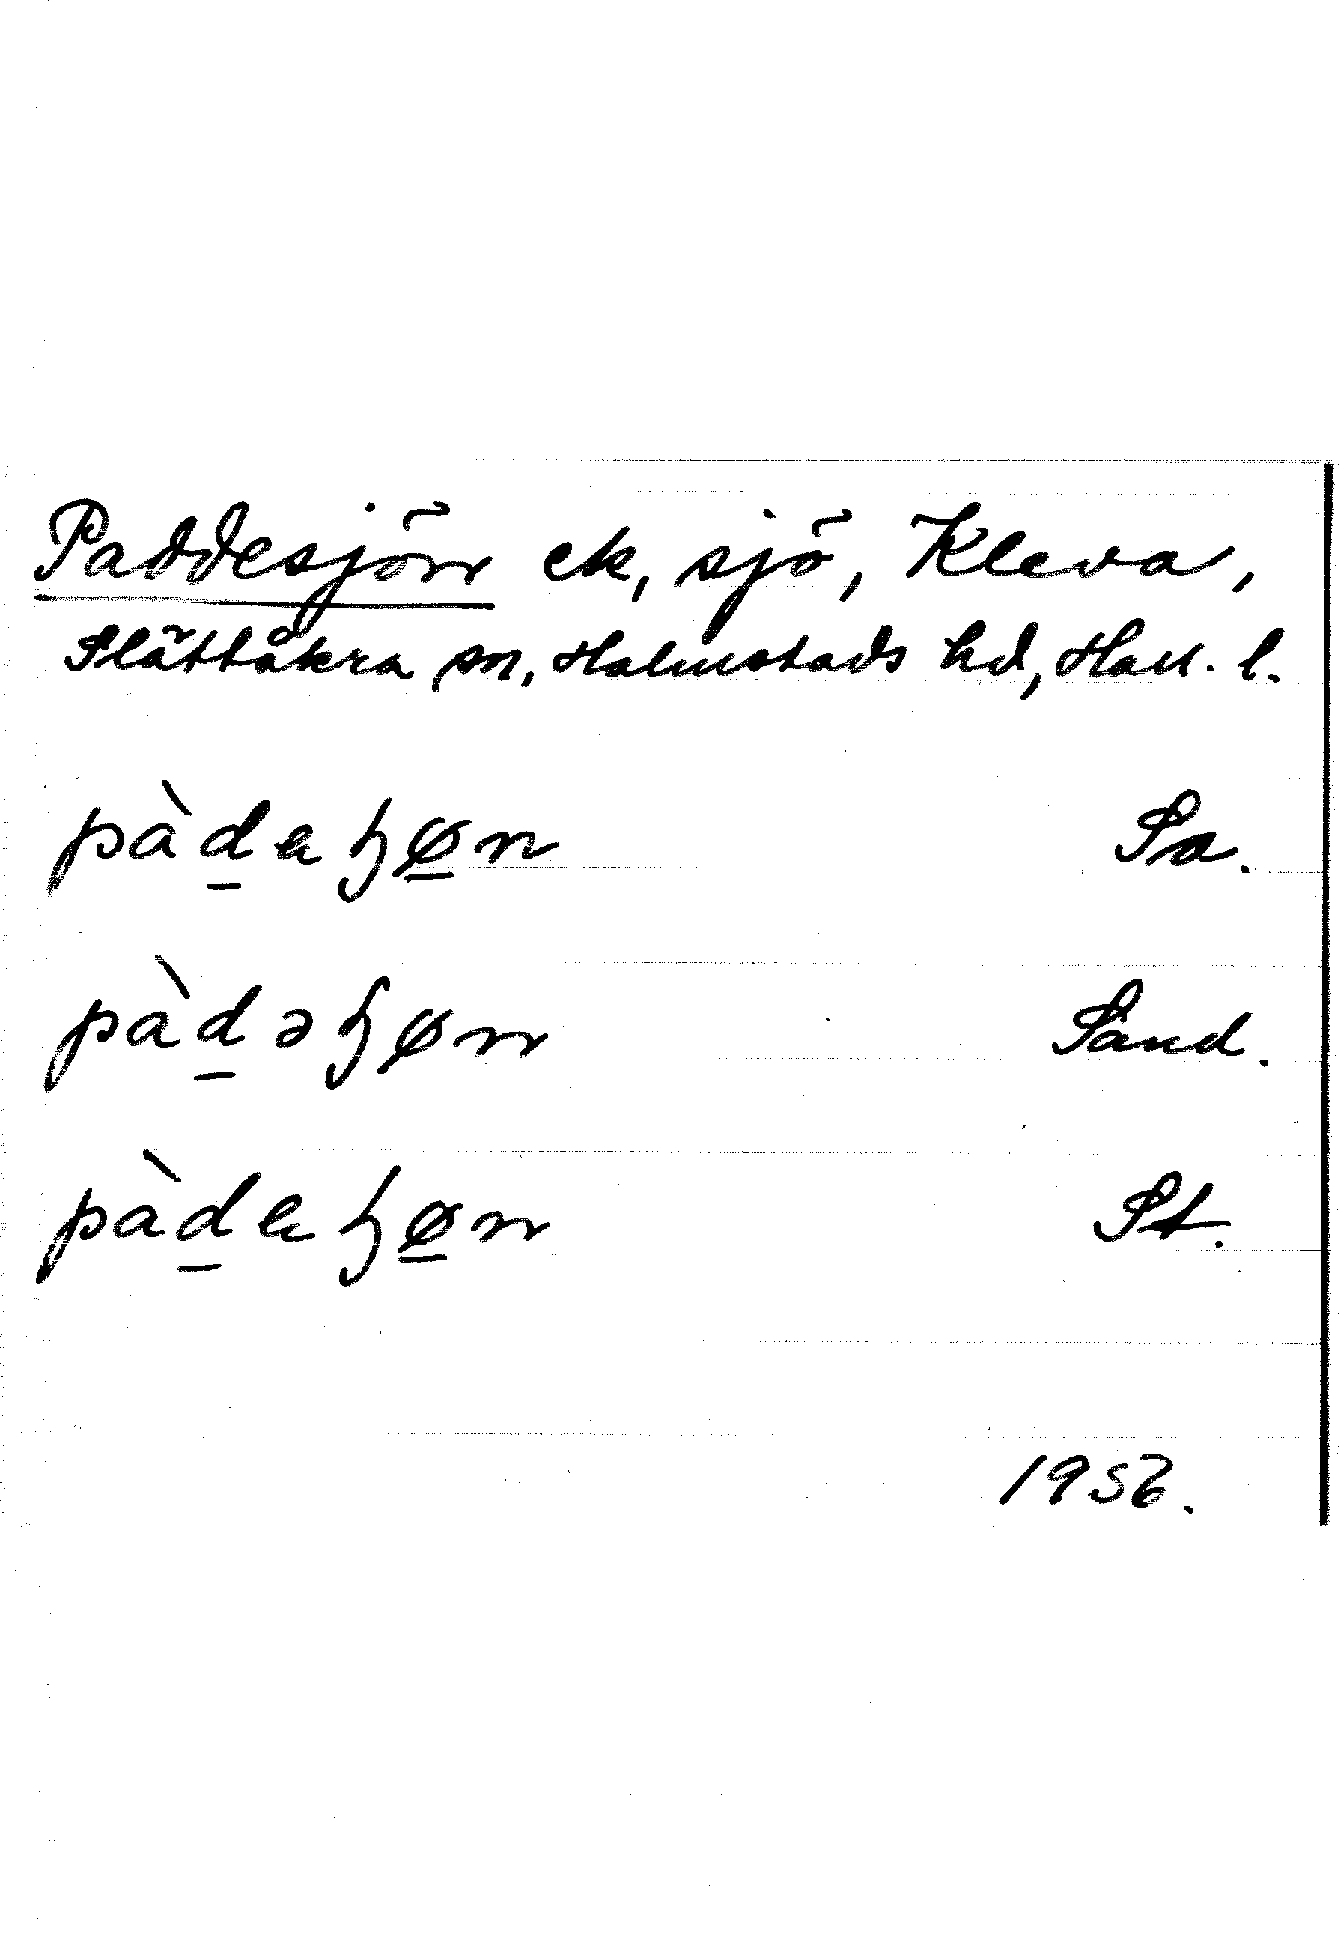 Paddesjön ek, sjö, Kleva,
Slättåkra sn, Halmstads hd, Hall. l.
pàd̲aɧø̲n Sa.
pàd̲əɧøn Sand.
pàd̲aɧø̲n St.
1956.